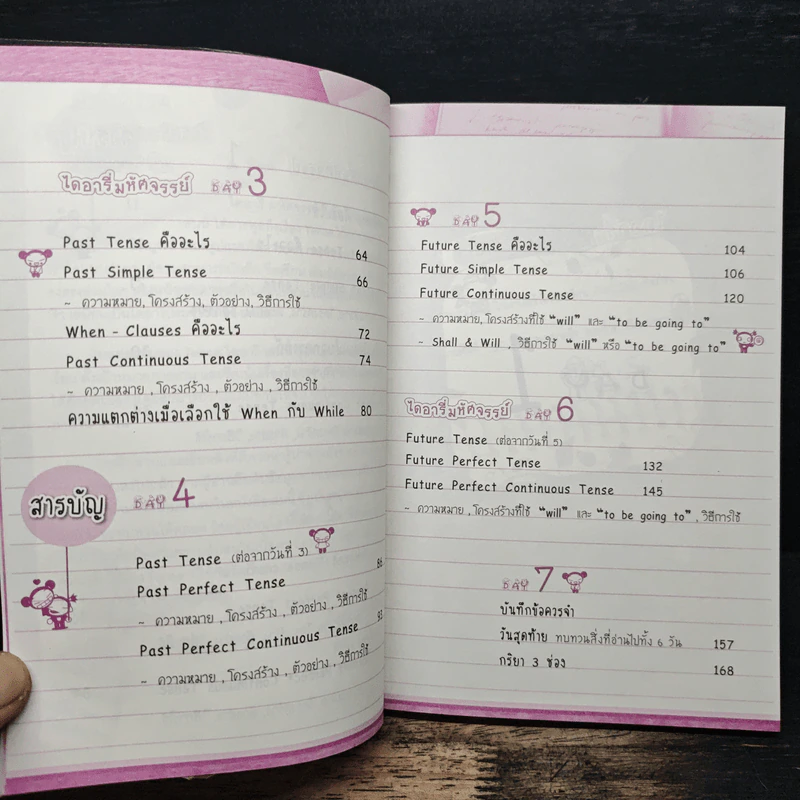 ไดอารี่มหัศจรรย์ DAY 3
Past Tense คืออะไร 64
Past Simple Tense 66
~ ความหมาย, โครงสร้าง, ตัวอย่าง, วิธีการใช้
When - Clauses คืออะไร 72
Past Continuous Tense 74
~ ความหมาย, โครงสร้าง , ตัวอย่าง , วิธีการใช้
ความแตกต่างเมื่อเลือกใช้ When กับ While 80
สารบัญ
DAY 4
Past Tense (ต่อจากวันที่ 3)
Past Perfect Tense 86
~ ความหมาย , โครงสร้าง , ตัวอย่าง , วิธีการใช้
Past Perfect Continuous Tense 93
~ ความหมาย , โครงสร้าง , ตัวอย่าง , วิธีการใช้
DAY 5
Future Tense คืออะไร 104
Future Simple Tense 106
Future Continuous Tense 120
~ ความหมาย, โครงสร้างที่ใช้ "will" และ "to be going to"
~ Shall & Will , วิธีการใช้ "will" หรือ "to be going to"
ไดอารี่มหัศจรรย์ DAY 6
Future Tense (ต่อจากวันที่ 5)
Future Perfect Tense 132
Future Perfect Continuous Tense 145
~ ความหมาย , โครงสร้างที่ใช้ "will" และ "to be going to" , วิธีการใช้
DAY 7
บันทึกข้อควรจำ
วันสุดท้าย ทบทวนสิ่งที่อ่านไปทั้ง 6 วัน 157
กริยา 3 ช่อง 168